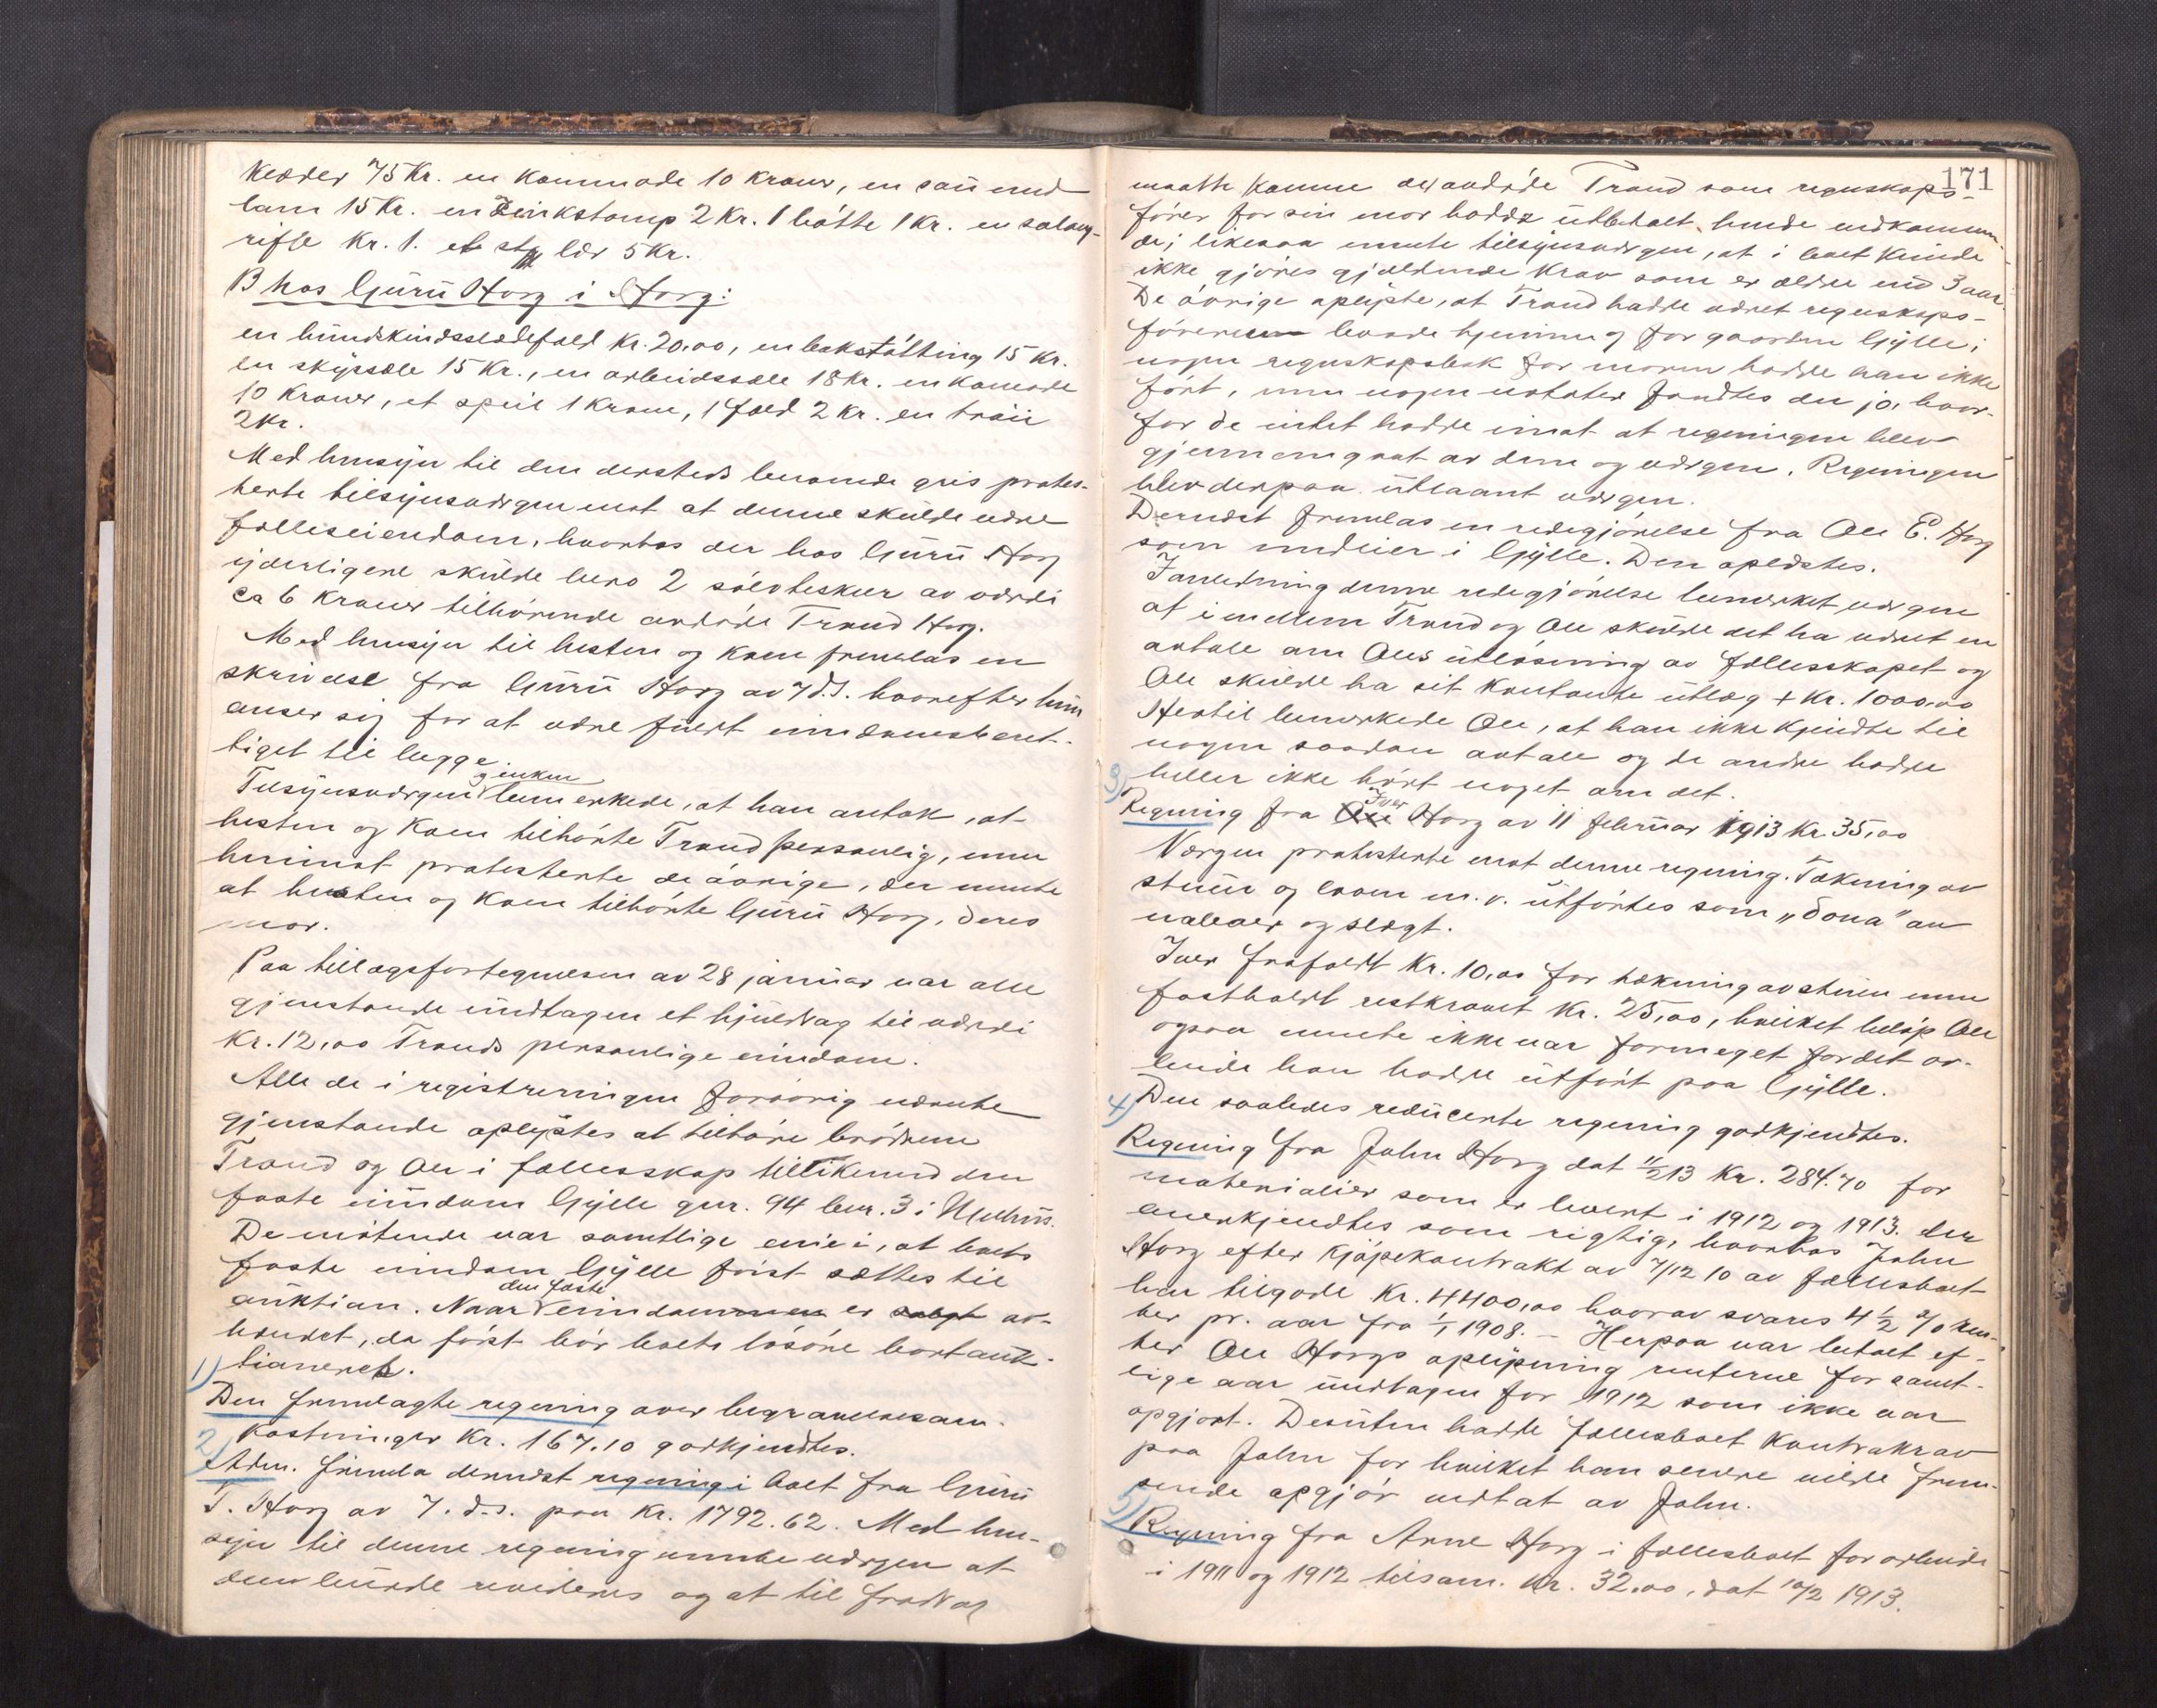 Klæder 75 Kr. en Kommode 10 Kroner, en sau med
lam 15 Kr. en Zinkstamp 2 Kr. 1 bøtte 1 Kr. en salong-
rifle Kr. 1. et stk lær 5 Kr.
B hos Guru Horg i Horg:
en hundskindsslædefæld Kr. 20,00, en 15 Kr.
en skyssæle 15 Kr., en arbeidssæle 18 Kr. en Komode
10 Kroner, et speil 1 Krone, 1 fæld 2 Kr. en
2 Kr.
Med hensyn til den dersteds beroende gris protes-
terte tilsynsværgen mot at denne skulde være
fælleseiendom, hvorhos der hos Guru Horg
yderligere skulde bero 2 sølvteskeer av værdi
ca 6 Kroner tilhørende avdøde Trond Horg.
Med hensyn til hesten og Koen fremlas en
skrivelse fra Guru Horg av 7 d.s. hvorefter hun
anser sig for at være fuldt eiendomsberet-
tiget til begge.
Tilsynsværgen og enken bemerkede, at han antok, at
hesten og Koen tilhørte Trond personlig, men
herimot protesterte de øvrige, der mente
at hesten og Koen tilhørte Guru Horg, deres
mor.
Paa tillægsfortegnelsen av 28 januar var alle
gjenstande undtagen et hjuldrag til værdi
Kr. 12,00 Tronds personlige eiendom.
Alle de i registreringen forøvrig nævnte
gjenstande oplystes at tilhøre brødrene
Trond og Ole i fællesskap tillikemed den
faste eiendom Gylle gnr. 94 bnr. 3 i Melhus.
De møtende var samtlige enig i, at boets
faste eiendom Gylle først sættes til
auktion. Naar den faste eiendommen er solgt av-
hændet, da først bør boets løsøre bortauk-
tioneres.
1) Den fremlagte regning over begravelsesom-
kostninger Kr. 167.10 godkjendtes.
2) Adm. fremla dernæst regning i boet fra Guru
T. Horg av 7. d.s. paa Kr. 1792.62. Med hen-
syn til denne regning mente værgen at
den burde revideres og at til fradrag
171
maatte komme det avdøde Trond som regnskaps-
fører for sin mor hadde utbetalt hende vedkommen-
de; likesaa mente tilsynsværgen, at i boet Kunde
ikke gjøres gjældende Krav som er ældre end 3 aar.
De øvrige oplyste, at Trond hadde været regnskaps-
føreren baade hjemme og for gaarden Gylle;
nogen regnskapsbok for moren hadde han ikke
ført, men nogen notater fandtes der jo, hvor-
for de intet hadde imot at regningen blev
gjennemgaat av dem og værgen. Regningen
blev derpaa utlaant værgen.
Dernæst fremlas en redegjørelse fra Ole E. Horg
som medeier i Gylle. Den oplæstes.
I anledning denne redegjørelse bemerket værgen
at imellem Trond og Ole skulde det ha været en
avtale om Oles utløsning av fællesskapet og
Ole skulde ha sit kontante utlæg + Kr. 1000.00
Hertil bemerkede Ole, at han ikke kjendte til
nogen saadan avtale og de andre hadde
heller ikke hørt noget om det.
3) Regning fra Ole Iver Horg av 11 februar 1913 Kr. 35,00
Værgen protesterte mot denne regning. Tækning av
stuen og laaen m.v. utførtes som "dona" av
naboer og slegt.
Iver frafaldt Kr. 10,00 for tækning av stuen men
fastholdt restkravet Kr. 25,00, hvilket beløp Ole
ogsaa mente ikke var formeget for det ar-
beide han hadde utført paa Gylle.
Den saaledes reducerte regning godkjendtes.
4) Regning fra John Horg dat 11/2 13 Kr. 284.70 for
materialier som er levert i 1912 og 1913. der
anerkjendtes som rigtig, hvorhos John
Horg efter kjøpekontrakt av 7/12 10 av fællesboet
har tilgode Kr. 4400,00 hvorav svares 4 1/2 % ren-
ter pr. aar fra 1/1 1908. – Herpaa var betalt ef-
ter Ole Horgs oplysning renterne for samt-
lige aar undtagen for 1912 som ikke var
opgjort. Desuten hadde fællesboet Kontrakrav
paa John for hvilket han senere vilde frem-
sende opgjør vedtat av John.
5) Regning fra Arne Horg i fællesboet for arbeide
i 1911 og 1912 tilsam. Kr. 32,00, dat 10/2 1913.